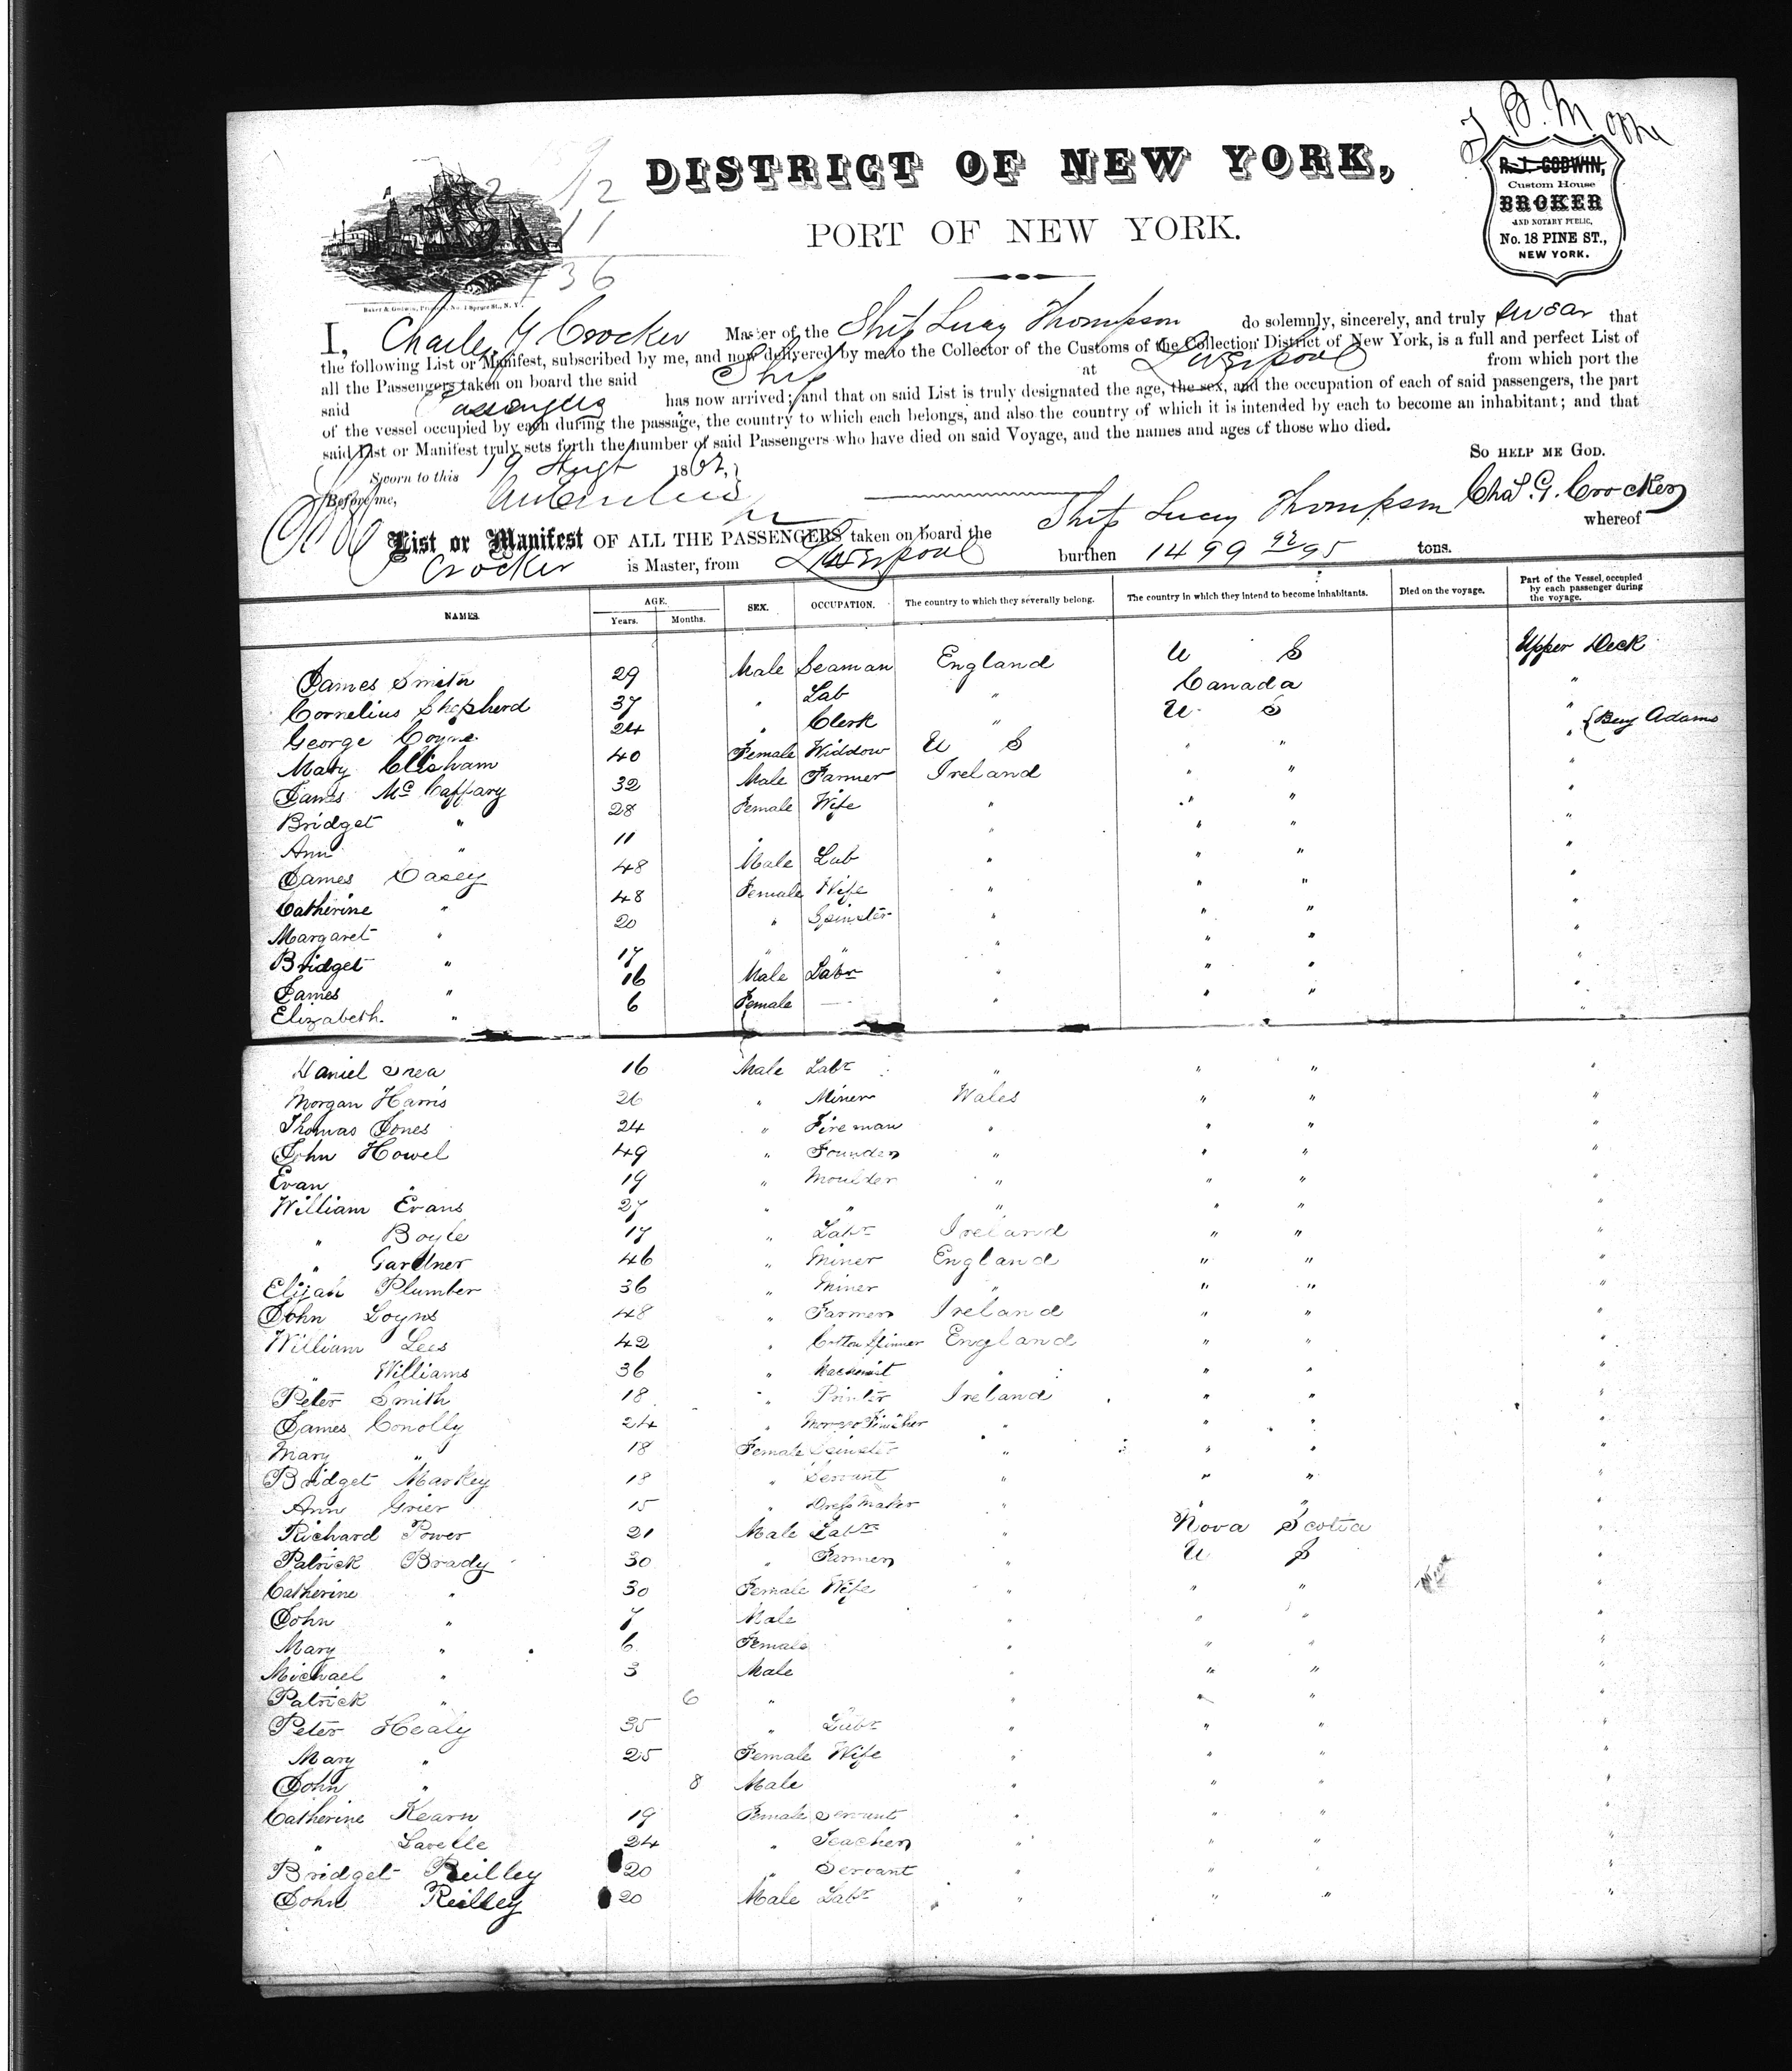 J B. Moore
DISTRICT OF NEW YORK,
PORT OF NEW YORK.
R. J. GODWIN,
Custom House
BROKER
AND NOTARY PUBLIC,
No. 18 PINE ST.,
NEW YORK.
12
11
36
Baker & Godwin, Printers, No. 1 Spruce St., N. Y.
I, Charles G Crocker Master of the Ship Lucy Thompson do solemnly, sincerely, and truly swear that
the following List or Manifest, subscribed by me, and now delivered by me to the Collector of the Customs of the Collection District of New York, is a full and perfect List of
all the Passengers taken on board the said Ship at Liverpool from which port the
said Passengers has now arrived; and that on said List is truly designated the age, the sex, and the occupation of each of said passengers, the part
of the vessel occupied by each during the passage, the country to which each belongs, and also the country of which it is intended by each to become an inhabitant; and that
said List or Manifest truly sets forth the number of said Passengers who have died on said Voyage, and the names and ages of those who died.
SO HELP ME GOD.
Sworn to this 19 Augt 1862,
Before me,
Chas. G. Crocker
List or Manifest OF ALL THE PASSENGERS taken on board the Ship Lucy Thompson whereof
Crocker is Master, from Liverpool burthen 1499 92/95 tons.
NAMES. AGE. Years. Months. SEX. OCCUPATION. The country to which they severally belong. The country in which they intend to become inhabitants. Died on the voyage. Part of the Vessel occupied by each passenger during the voyage.
James Smith 29 Male Seaman England U S Upper Deck
Cornelius Shepherd 37 " Lab " Canada "
George Coyne 24 " Clerk " U S "
Mary Clisham 40 Female Widdow U S " " " { Benj Adams
James McCaffary 32 Male Farmer Ireland " " "
Bridget " 28 Female Wife " " " "
Ann " 11 " " " " "
James Casey 48 Male Lab " " " "
Catherine " 48 Female Wife " " " "
Margaret " 20 " Spinster " " " "
Bridget " 17 " " " " " "
James " 16 Male Labr " " " "
Elizabeth. " 6 Female — " " " "
Daniel Srea 16 Male Labr " " " "
Morgan Harris 26 " Miner Wales " " "
Thomas Jones 24 " Fireman " " " "
John Howel 49 " Founder " " " "
Evan " 19 " Moulder " " " "
William Evans 27 " " " " " "
" Boyle 17 " Labr Ireland " " "
" Gardner 46 " Miner England " " "
Elijah Plumber 36 " Miner " " " "
John Loyns 48 " Farmer Ireland " " "
William Lees 42 " Cotton Spinner England " " "
" Williams 36 " Machinist " " " "
Peter Smith 18 " Printer Ireland " " "
James Conolly 24 " Finisher " " " "
Mary " 18 Female Spinster " " " "
Bridget Markey 18 " Servant " " " "
Ann Grier 15 " Dress Maker " " " "
Richard Power 21 Male Labr " Nova Scotia "
Patrick Brady 30 " Farmer " U S "
Catherine " 30 Female Wife " " " "
John " 7 Male " " "
Mary " 6 Female " " " "
Michael " 3 Male " " " "
Patrick " 6 " " " " "
Peter Healy 35 " Labr " " " "
Mary " 25 Female Wife " " " "
John " 8 Male " " " "
Catherine Kearn 19 Female Servant " " " "
" Lavelle 24 " Teacher " " " "
Bridget Reilley 20 " Servant " " " "
John Reilley 20 Male Labr " " " "